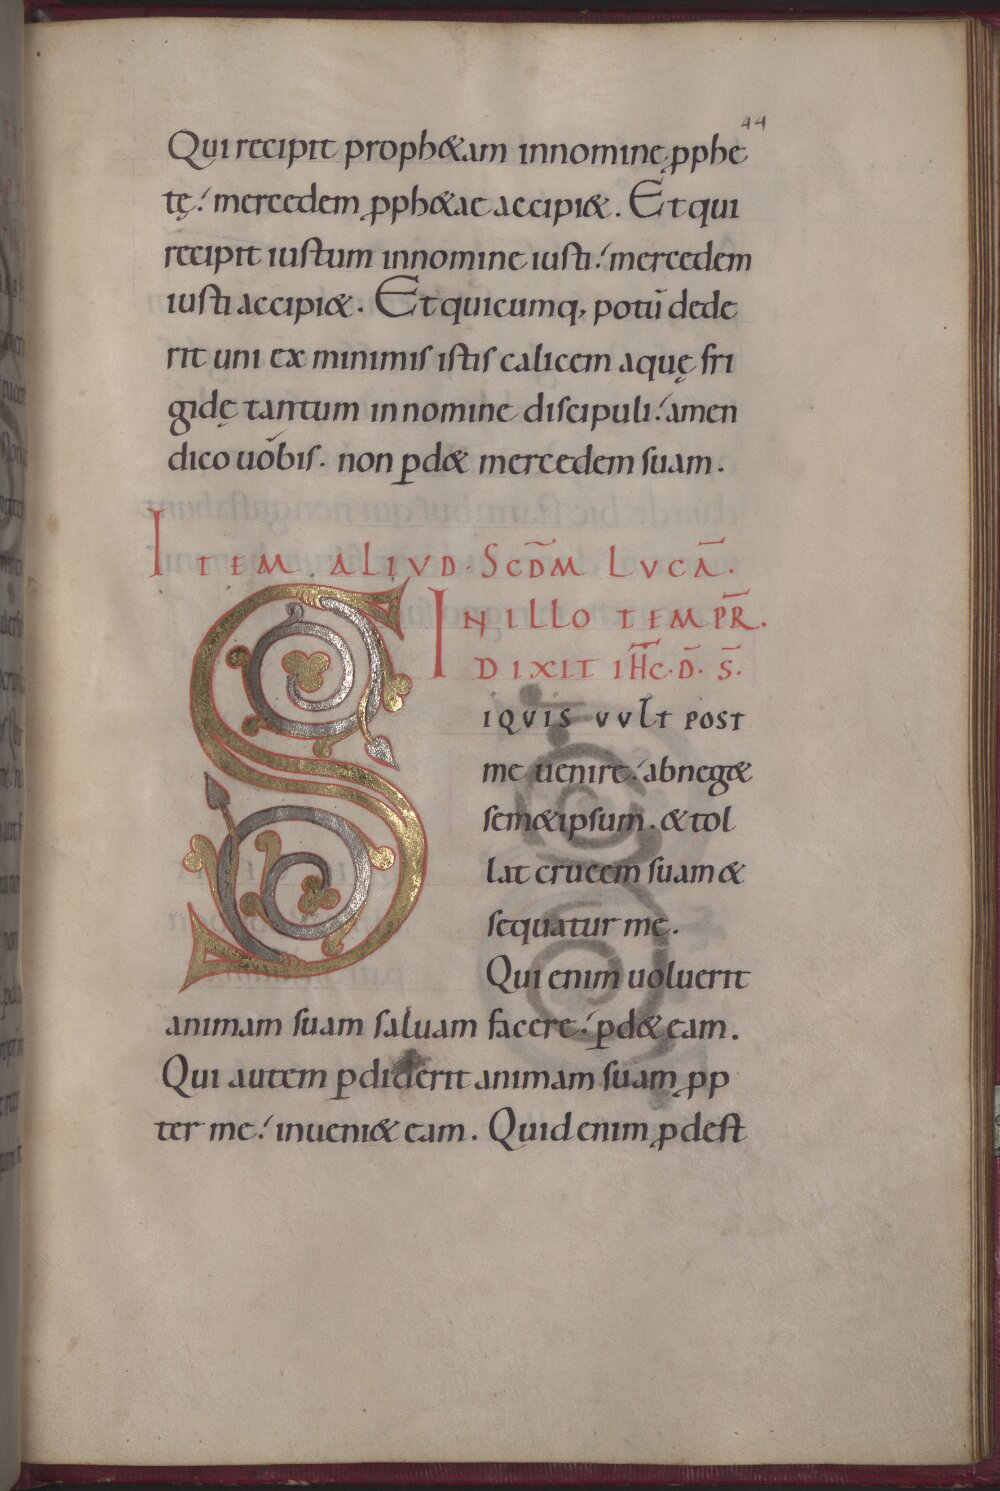 44
Qui recipit proph&am innomine ꝓphe
tę؛ mercedem ꝓph&ae accipi&. Et qui
recipit iustum innomine iusti؛ mercedem
iusti accipi&. Et quicumq; potū dede
rit uni ex minimis istis calicem aquę fri
gidę tantum innomine discipuli؛ amen
dico uobis. non ꝑd& mercedem suam.
ITEM ALIUD. SCDM̄ LUCĀ.
IN ILLO TEMPR̄.
DIXIT IH̄C. D̄. S̄.
SIQUIS VULT POST
me uenire؛ abneg&
sem&ipsum. & tol
lat crucem suam &
sequatur me.
Qui enim uoluerit
animam suam saluam facere؛ ꝑd& eam.
Qui autem ꝑdiderit animam suam ꝓp
ter me؛ inueni& eam. Quid enim ꝓdest